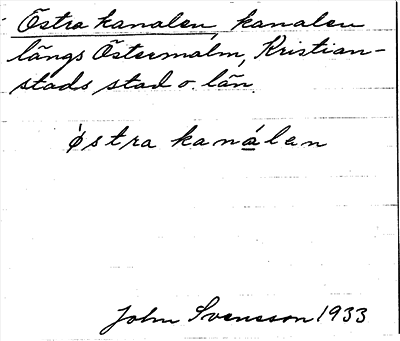 Östra kanalen kanalen
längs Östermalm, Kristian-
stads stad o. län.
ˈøstra kanálen
John Svensson 1933